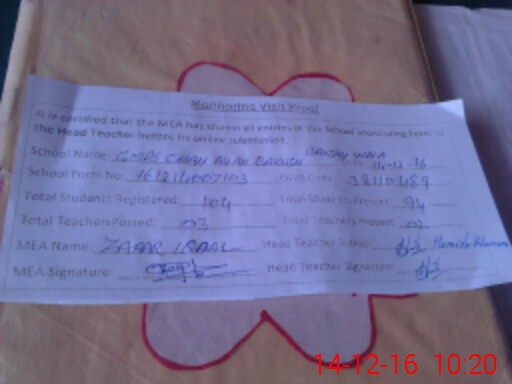 Monitoring Visit Proof
It is certified that the MEA has shown all entries of the School Monitoring Form to
the Head Teacher before its online submission.
School Name: Date: 14-12-16
School Form No: EMIS Code: 38110489
Total Students Registered: 104 Total Students Present: 94
Total Teachers Posted: 03 Total Teachers Present:
MEA Name: ZAFAR IQBAL Head Teacher Name:
MEA Signature: Head Teacher Signature:
14-12-16 10:20